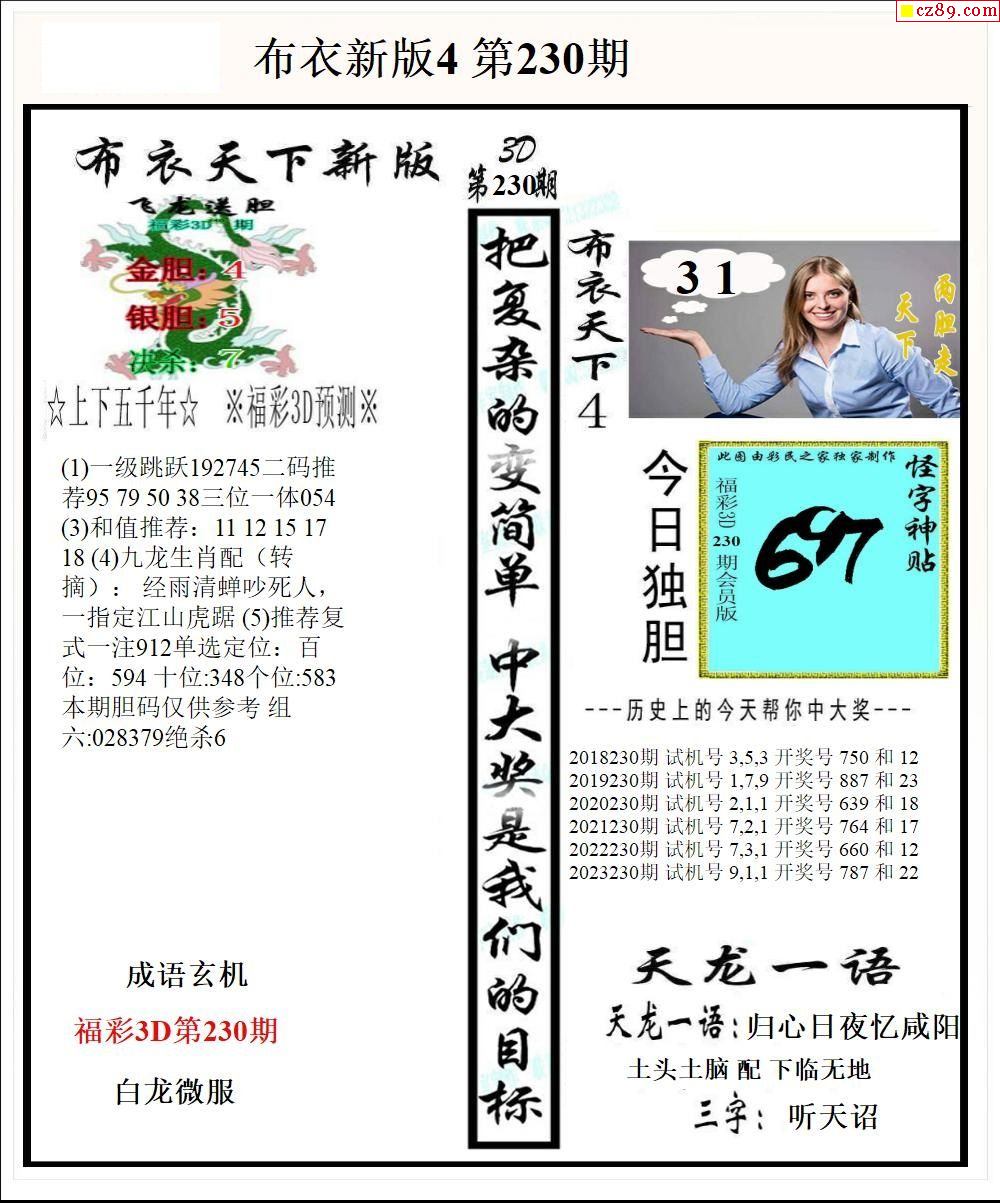 cz89.com
布衣新版4 第230期
布衣天下新版
飞龙送胆
福彩3D 期
金胆：4
银胆：5
决杀：7
☆上下五千年☆ ※福彩3D预测※
(1)一级跳跃192745二码推
荐95 79 50 38三位一体054
(3)和值推荐：11 12 15 17
18 (4)九龙生肖配（转
摘）： 经雨清蝉吵死人，
一指定江山虎踞 (5)推荐复
式一注912单选定位：百
位：594 十位:348个位:583
本期胆码仅供参考 组
六:028379绝杀6
成语玄机
福彩3D第230期
白龙微服
3D
第230期
把复杂的变简单 中大奖是我们的目标
布衣天下4
3 1
两胆走
天下
今日独胆
此图由彩民之家独家制作
怪字神贴
福彩3D 230 期会员版
---历史上的今天帮你中大奖---
2018230期 试机号 3,5,3 开奖号 750 和 12
2019230期 试机号 1,7,9 开奖号 887 和 23
2020230期 试机号 2,1,1 开奖号 639 和 18
2021230期 试机号 7,2,1 开奖号 764 和 17
2022230期 试机号 7,3,1 开奖号 660 和 12
2023230期 试机号 9,1,1 开奖号 787 和 22
天龙一语
天龙一语：归心日夜忆咸阳
土头土脑 配 下临无地
三字： 听天诏